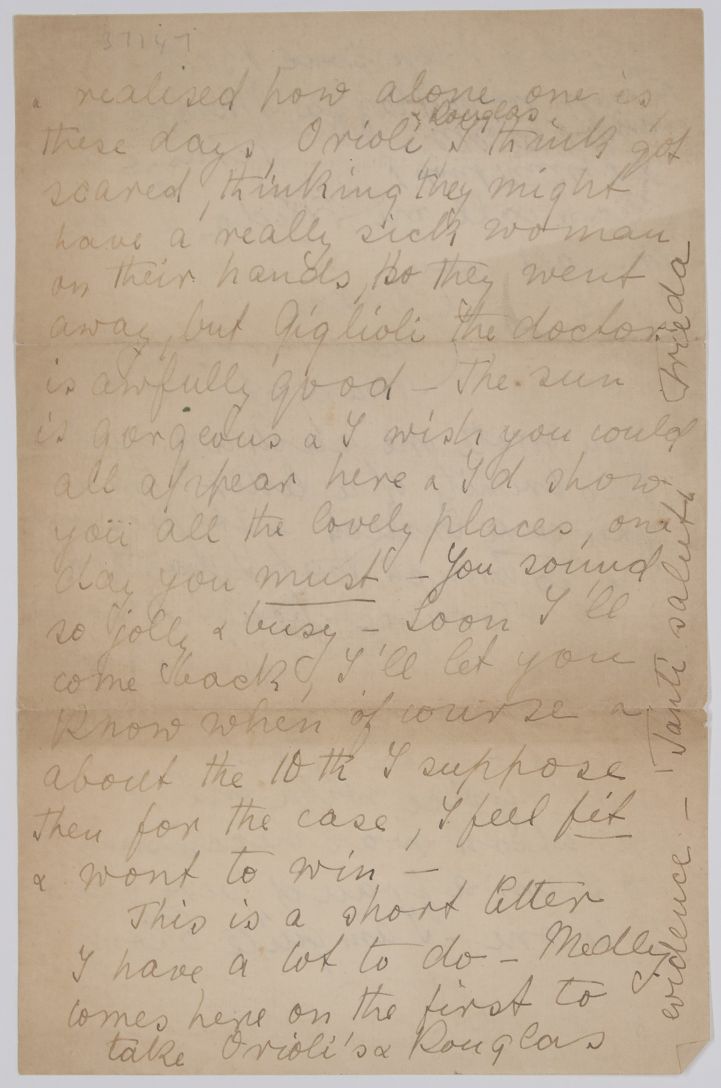 37147
& realised how alone one is
these days, Orioli & Douglas I think got
scared, thinking they might
have a really sick woman
on their hands, so they went
away, but Giglioli the doctor
is awfully good – The sun
is gorgeous & I wish you could
all appear here & I'd show
you all the lovely places, one
day you must – You sound
so jolly & busy – Soon I'll
come back, I'll let you
know when of course &
about the 10th I suppose
Then for the case, I feel fit
& want to win –
This is a short letter
I have a lot to do – Medley
comes here on the first to
take Orioli's & Douglas
evidence – – Tanti saluti Frieda